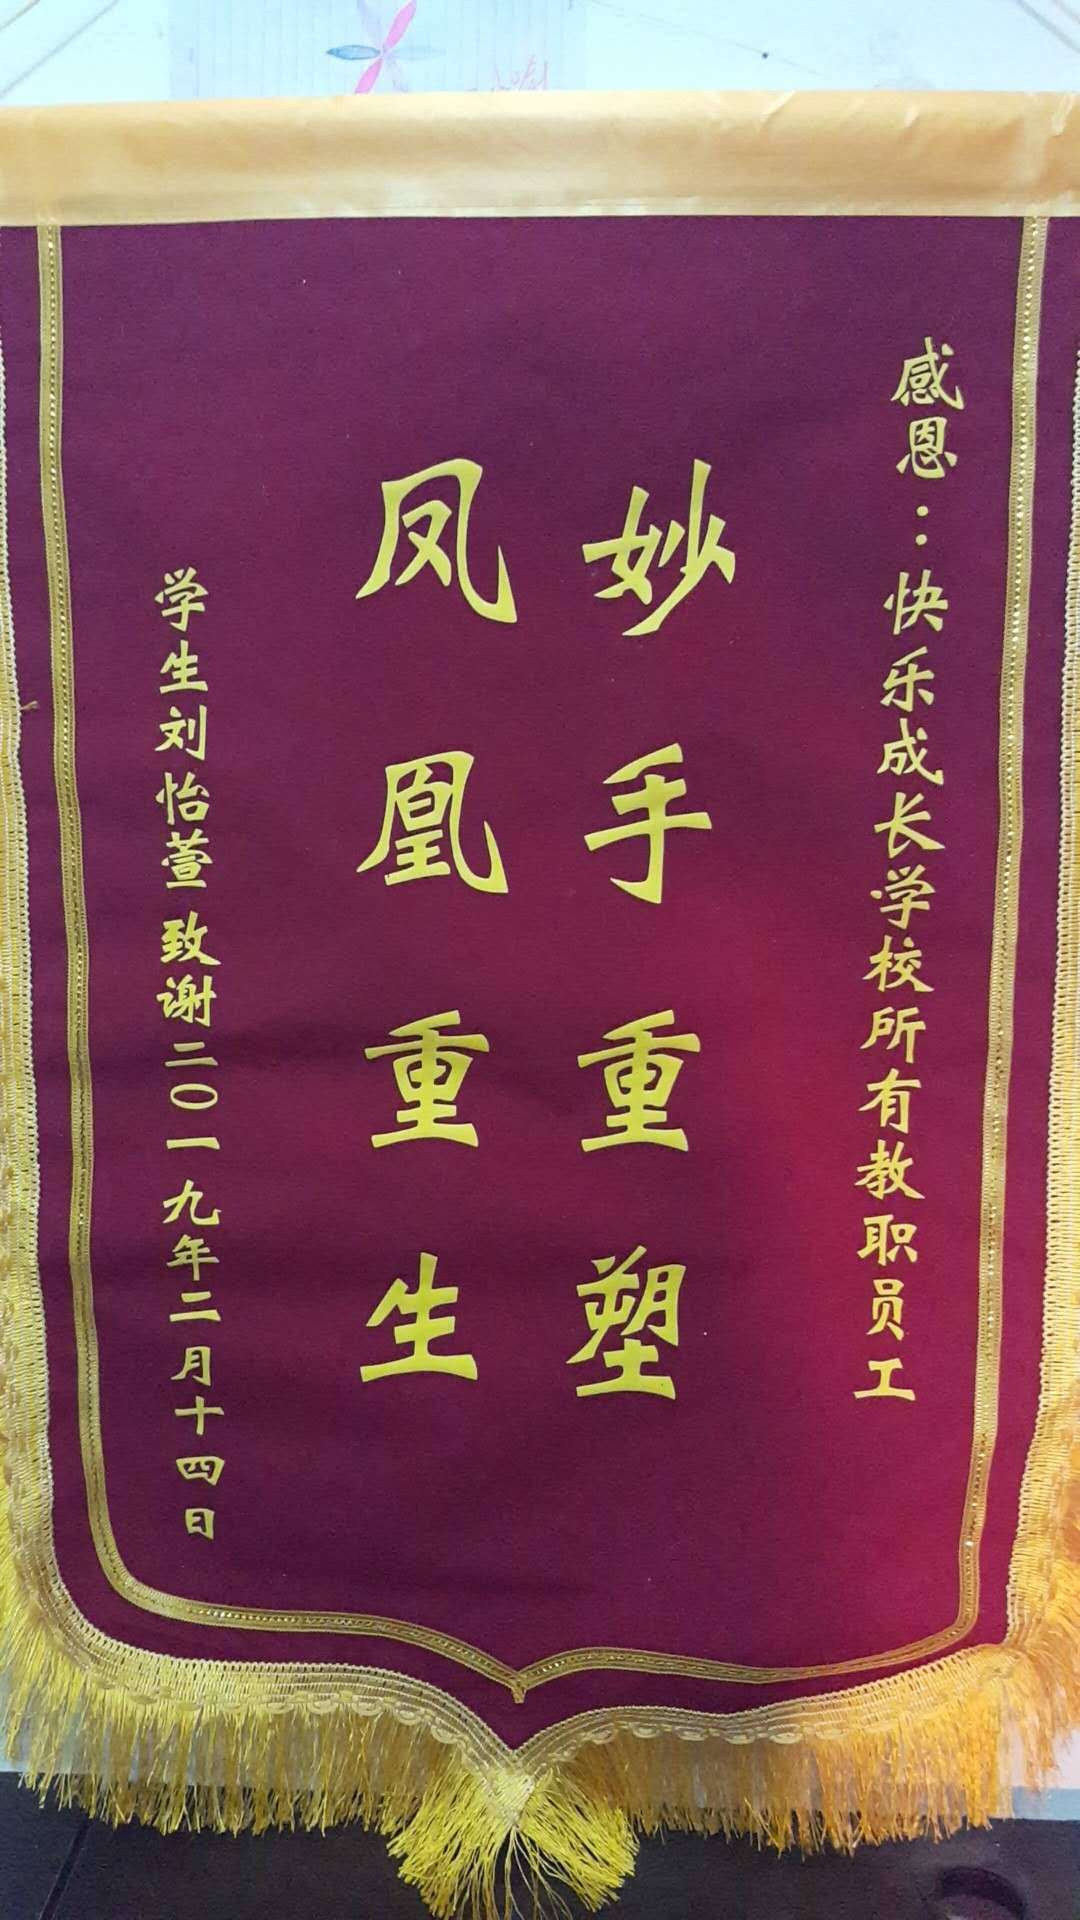 感恩：快乐成长学校所有教职员工
妙手重塑
凤凰重生
学生刘怡萱致谢二〇一九年二月十四日